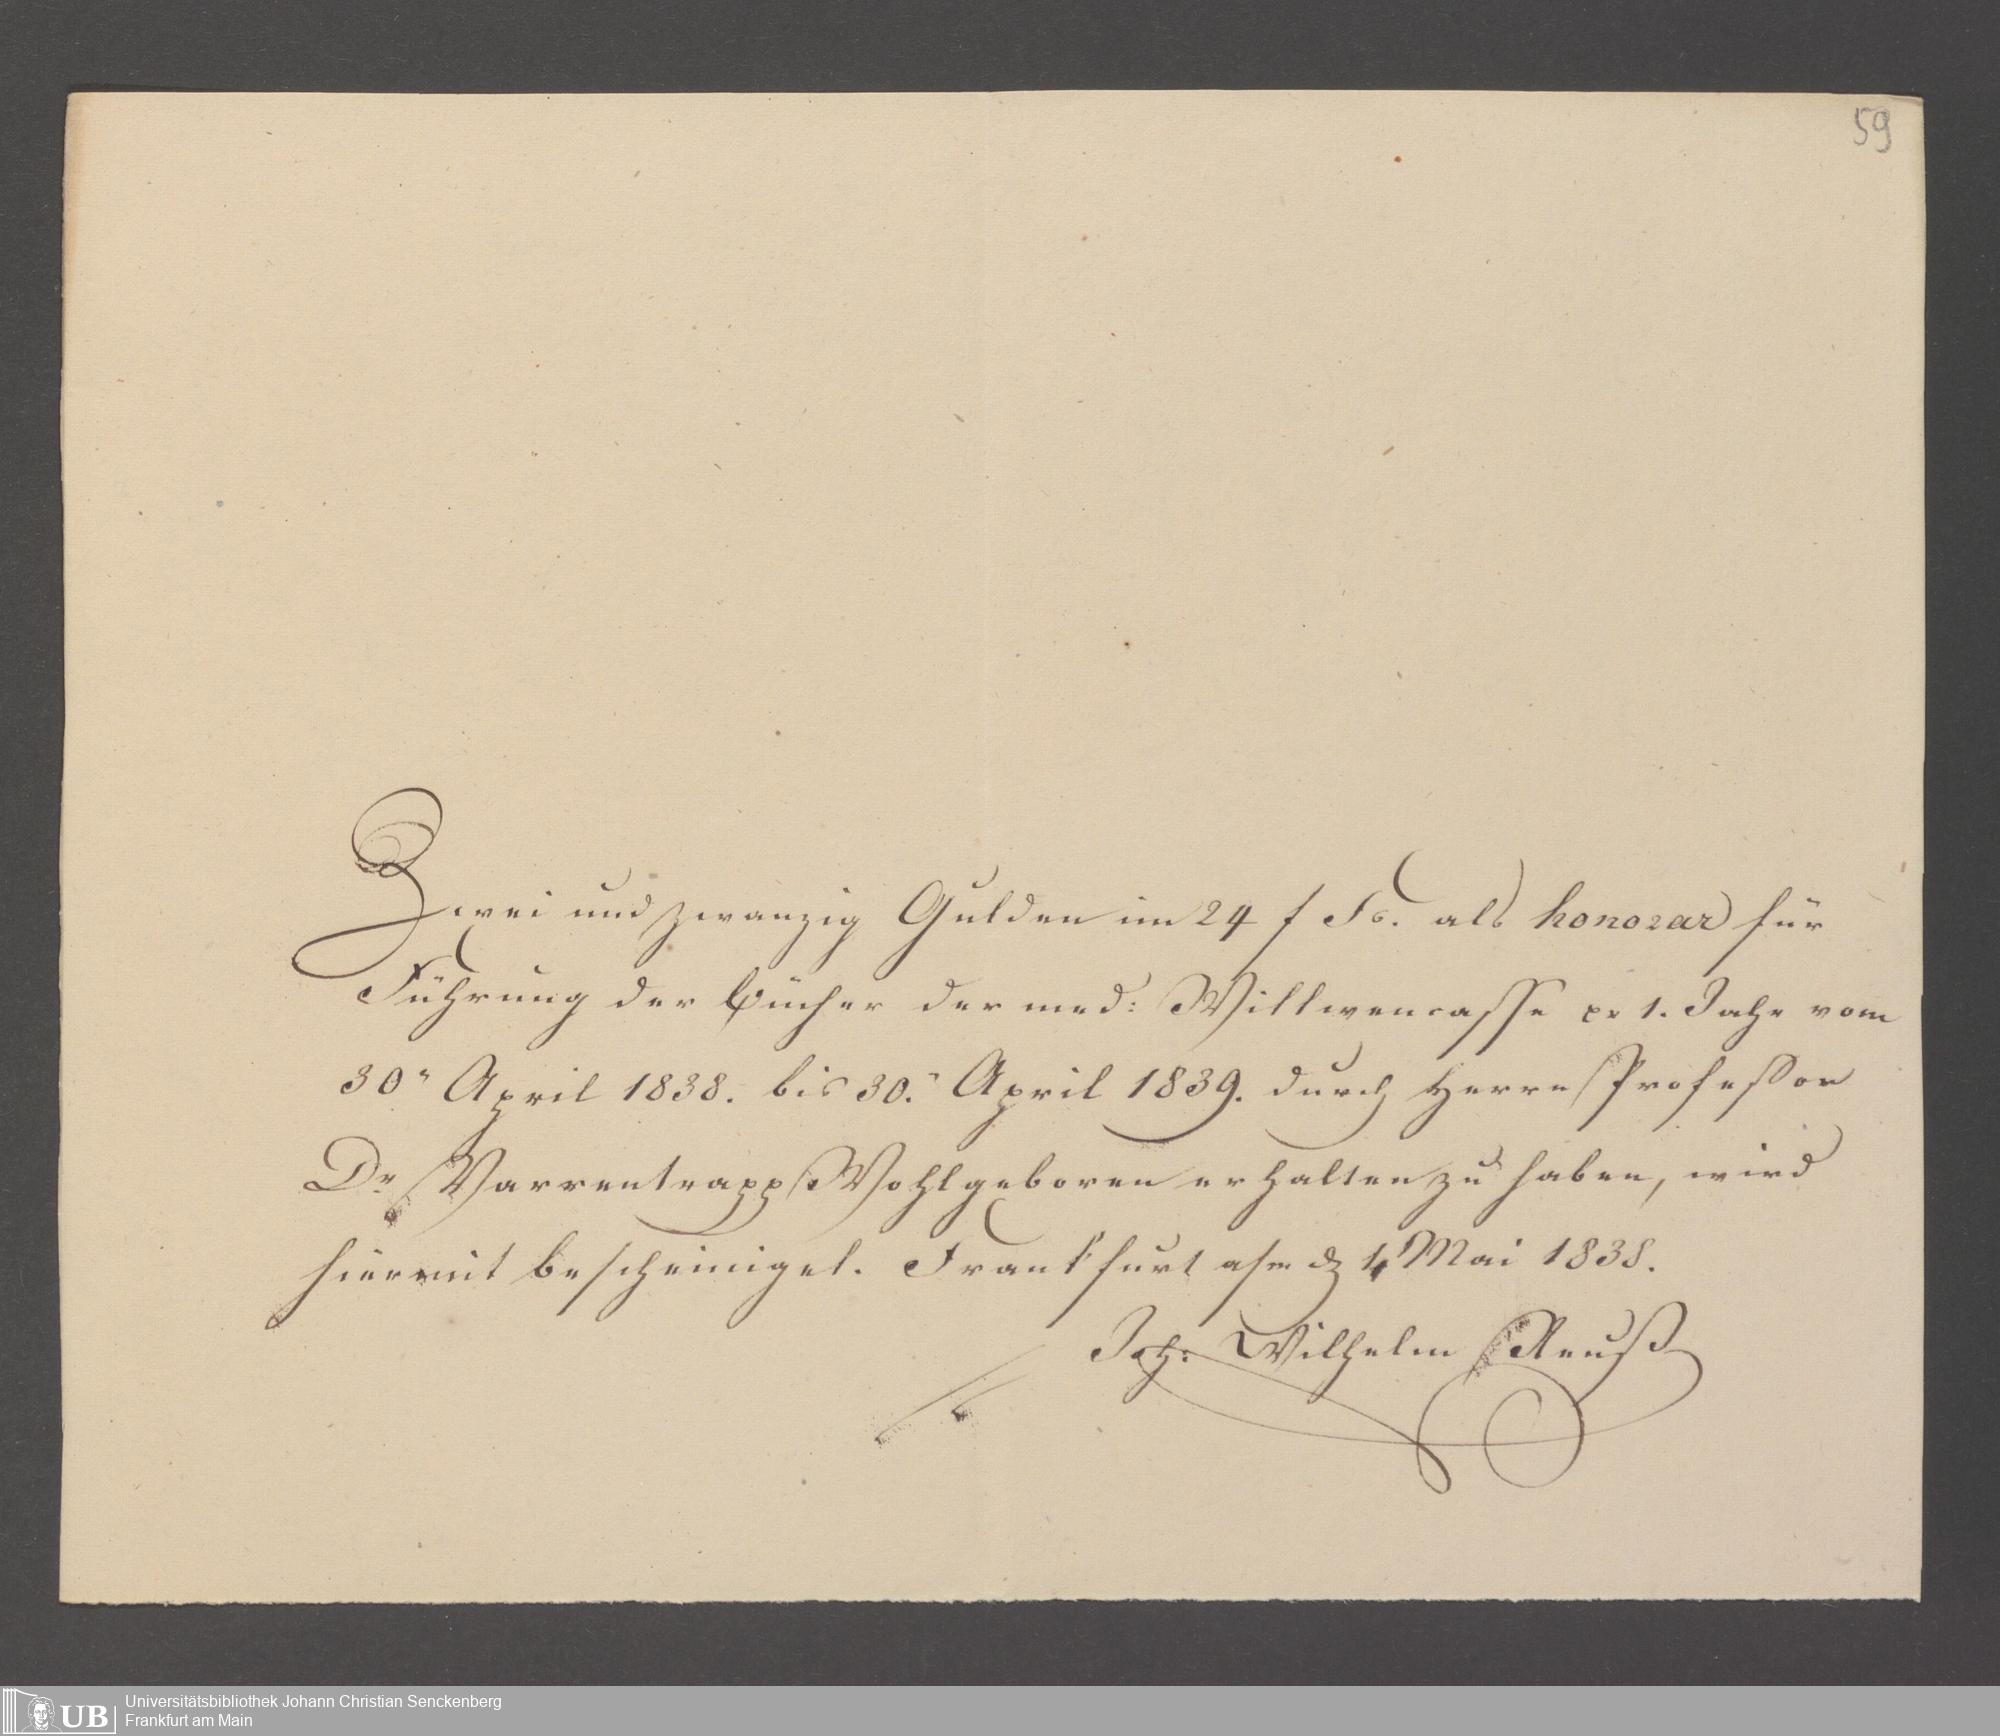 59
Zwei und zwanzig Gulden im 24 f Fs. als honorar für
Führung der Bücher der med: Wittwencasse pr 1. Jahr vom
30n April 1838. bis 30.n April 1839. durch Herrn Professor
Dr. Varrentrapp Wohlgeboren erhalten zu haben, wird
hiermit bescheiniget. Frankfurt a/m d 4 Mai 1838.
Joh: Wilhelm Reuß
UB
Universitätsbibliothek Johann Christian Senckenberg
Frankfurt am Main